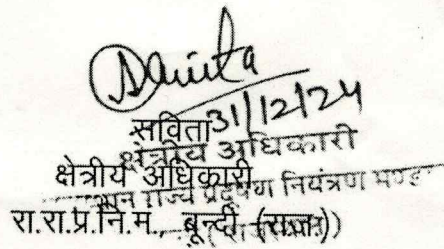 Savita
31/12/24
सविता
क्षेत्रीय अधिकारी
क्षेत्रीय अधिकारी
राज्य प्रदूषण नियंत्रण मण्डल
रा.रा.प्र.नि.म., बून्दी (राज.)